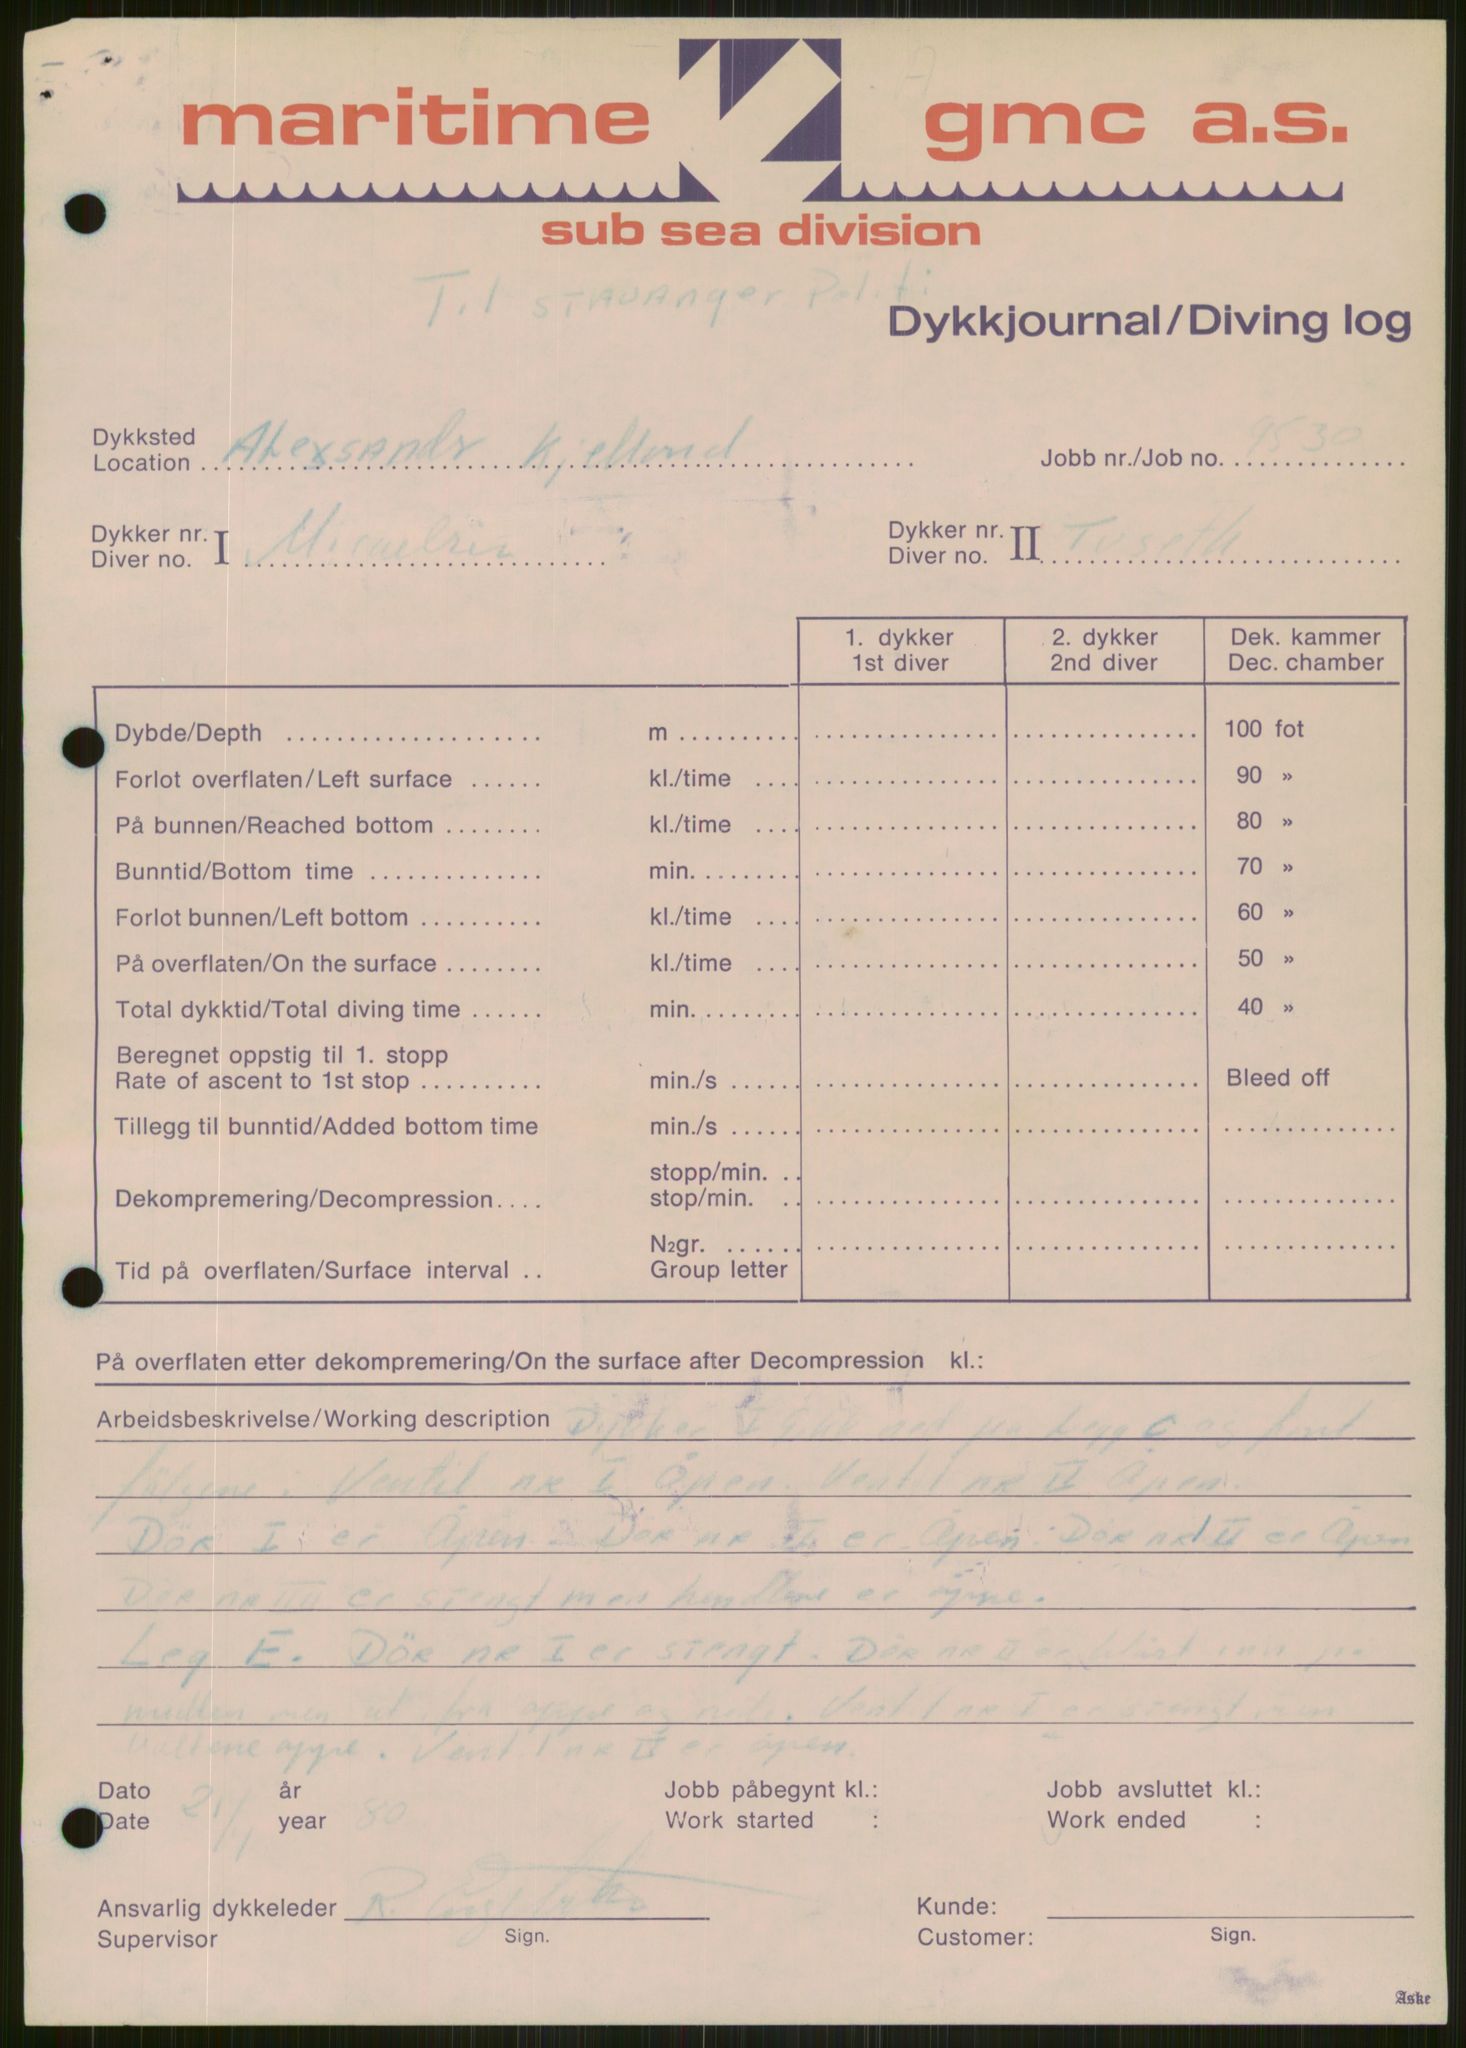 maritime gmc a.s.
sub sea division
Til STAVANger Politi
Dykkjournal/Diving log
Dykksted
Location ALeXSANDr Kjelland
Jobb nr./Job no. 9530
Dykker nr. I
Diver no.
Dykker nr. II Tuseth
Diver no.
1. dykker 2. dykker Dek. kammer
1st diver 2nd diver Dec. chamber
Dybde/Depth m 100 fot
Forlot overflaten/Left surface kl./time 90 »
På bunnen/Reached bottom kl./time 80 »
Bunntid/Bottom time min. 70 »
Forlot bunnen/Left bottom kl./time 60 »
På overflaten/On the surface kl./time 50 »
Total dykktid/Total diving time min. 40 »
Beregnet oppstig til 1. stopp
Rate of ascent to 1st stop min./s Bleed off
Tillegg til bunntid/Added bottom time min./s
stopp/min.
Dekompremering/Decompression stop/min.
N2gr.
Tid på overflaten/Surface interval Group letter
På overflaten etter dekompremering/On the surface after Decompression kl.:
Arbeidsbeskrivelse/Working description Dykker I Gikk ned på Legg C og fant
følgene. Ventil nR I Åpen. Ventil nR II Åpen.
DöR I er Åpen. DöR nR er Åpen. DöR nR II er Åpen
DöR nR IIII er stengt men hendlene er åpne.
Leg E. DöR nR I er stengt. DöR nR II er inn på
midten men ut fra oppe og nede. Ventil nR I er stengt men
boltene oppe. Ventil nR II er åpen.
Dato år Jobb påbegynt kl.: Jobb avsluttet kl.:
Date 21/1 year 80 Work started : Work ended :
Ansvarlig dykkeleder R. Kunde:
Supervisor Sign. Customer: Sign.
Aske